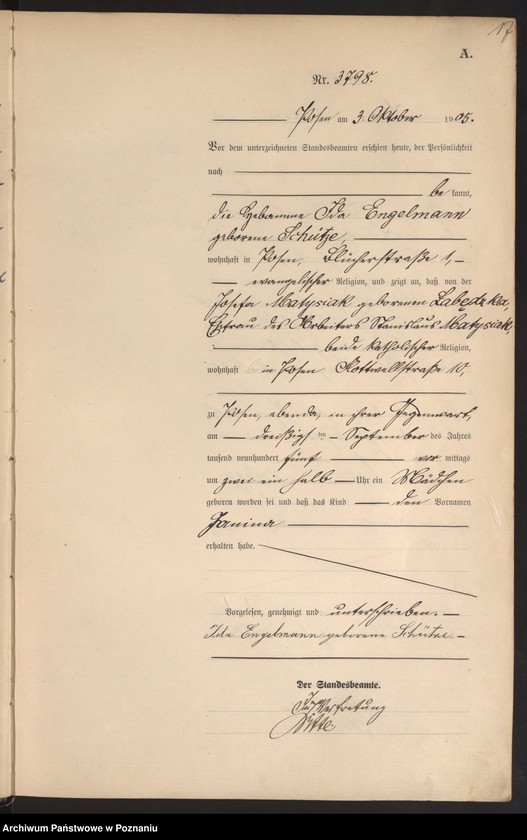 17
A.
Nr. 3798.
Posen am 3. Oktober 1905.
Vor dem unterzeichneten Standesbeamten erschien heute, der Persönlichkeit
nach
be kannt,
die Hebamme Ida Engelmann
geborene Schütze,
wohnhaft in Posen, Blücherstraße 1,
evangelischer Religion, und zeigt an, daß von der
Josefa Matysiak geborenen Labędzka,
Ehefrau des Arbeiters Stanislaus Matysiak,
beide katholischer Religion,
wohnhaft in Posen Kottwellstraße 10,
zu Posen, ebenda, in ihrer Gegenwart,
am dreißigsten September des Jahres
tausend neunhundert fünf vor mittags
um zwei ein halb Uhr ein Mädchen
geboren worden sei und daß das Kind den Vornamen
Janina
erhalten habe.
Vorgelesen, genehmigt und unterschrieben.
Ida Engelmann geborene Schütze
Der Standesbeamte.
In Vertretung
Witte
Archiwum Państwowe w Poznaniu